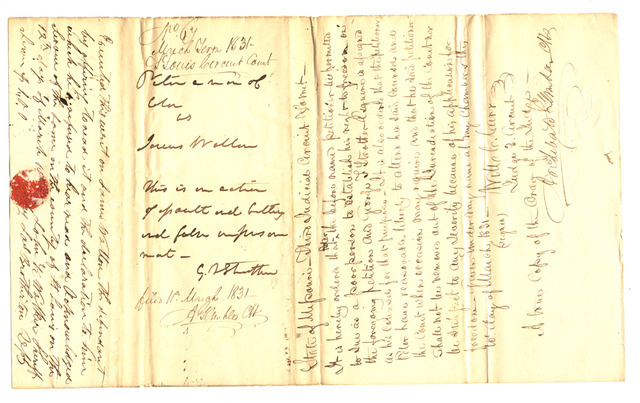 No 67
March Term 1831
St Louis Circuit Court
Peter a man of
Color
vs
James Walton
This is an action
of assault and battery
and false imprison
ment —
G. Strother
filed 11th March 1831 —
Clk
State of Missouri Third Judicial Circuit Court —
It is hereby ordered that the before named petitioner be permitted
to sue as a poor person to establish his right to freedom on
the foregoing petition and George Strother Esquire is assigned
as his Counsel for that purpose. It is also ordered that the petitioner
Peter have reasonable liberty to attend his said Counsel and
the Court when occasion may require and that he said petitioner
shall not be removed out of the Jurisdiction of the Court nor
be subject to any severity because of his application for
freedom. Given under my hand at my Chambers this
10 day of March 1831
(signed)
Judge 3 Circuit
A true Copy of the Order of the Judge
Clk
Executed this writ on James Walton the defendant
by offering to read it and the declaration to him
which he refused to hear read and Acknowledged
Service of the same in the County of St Louis on the
12th day of March 1831 John K Walker Sheriff